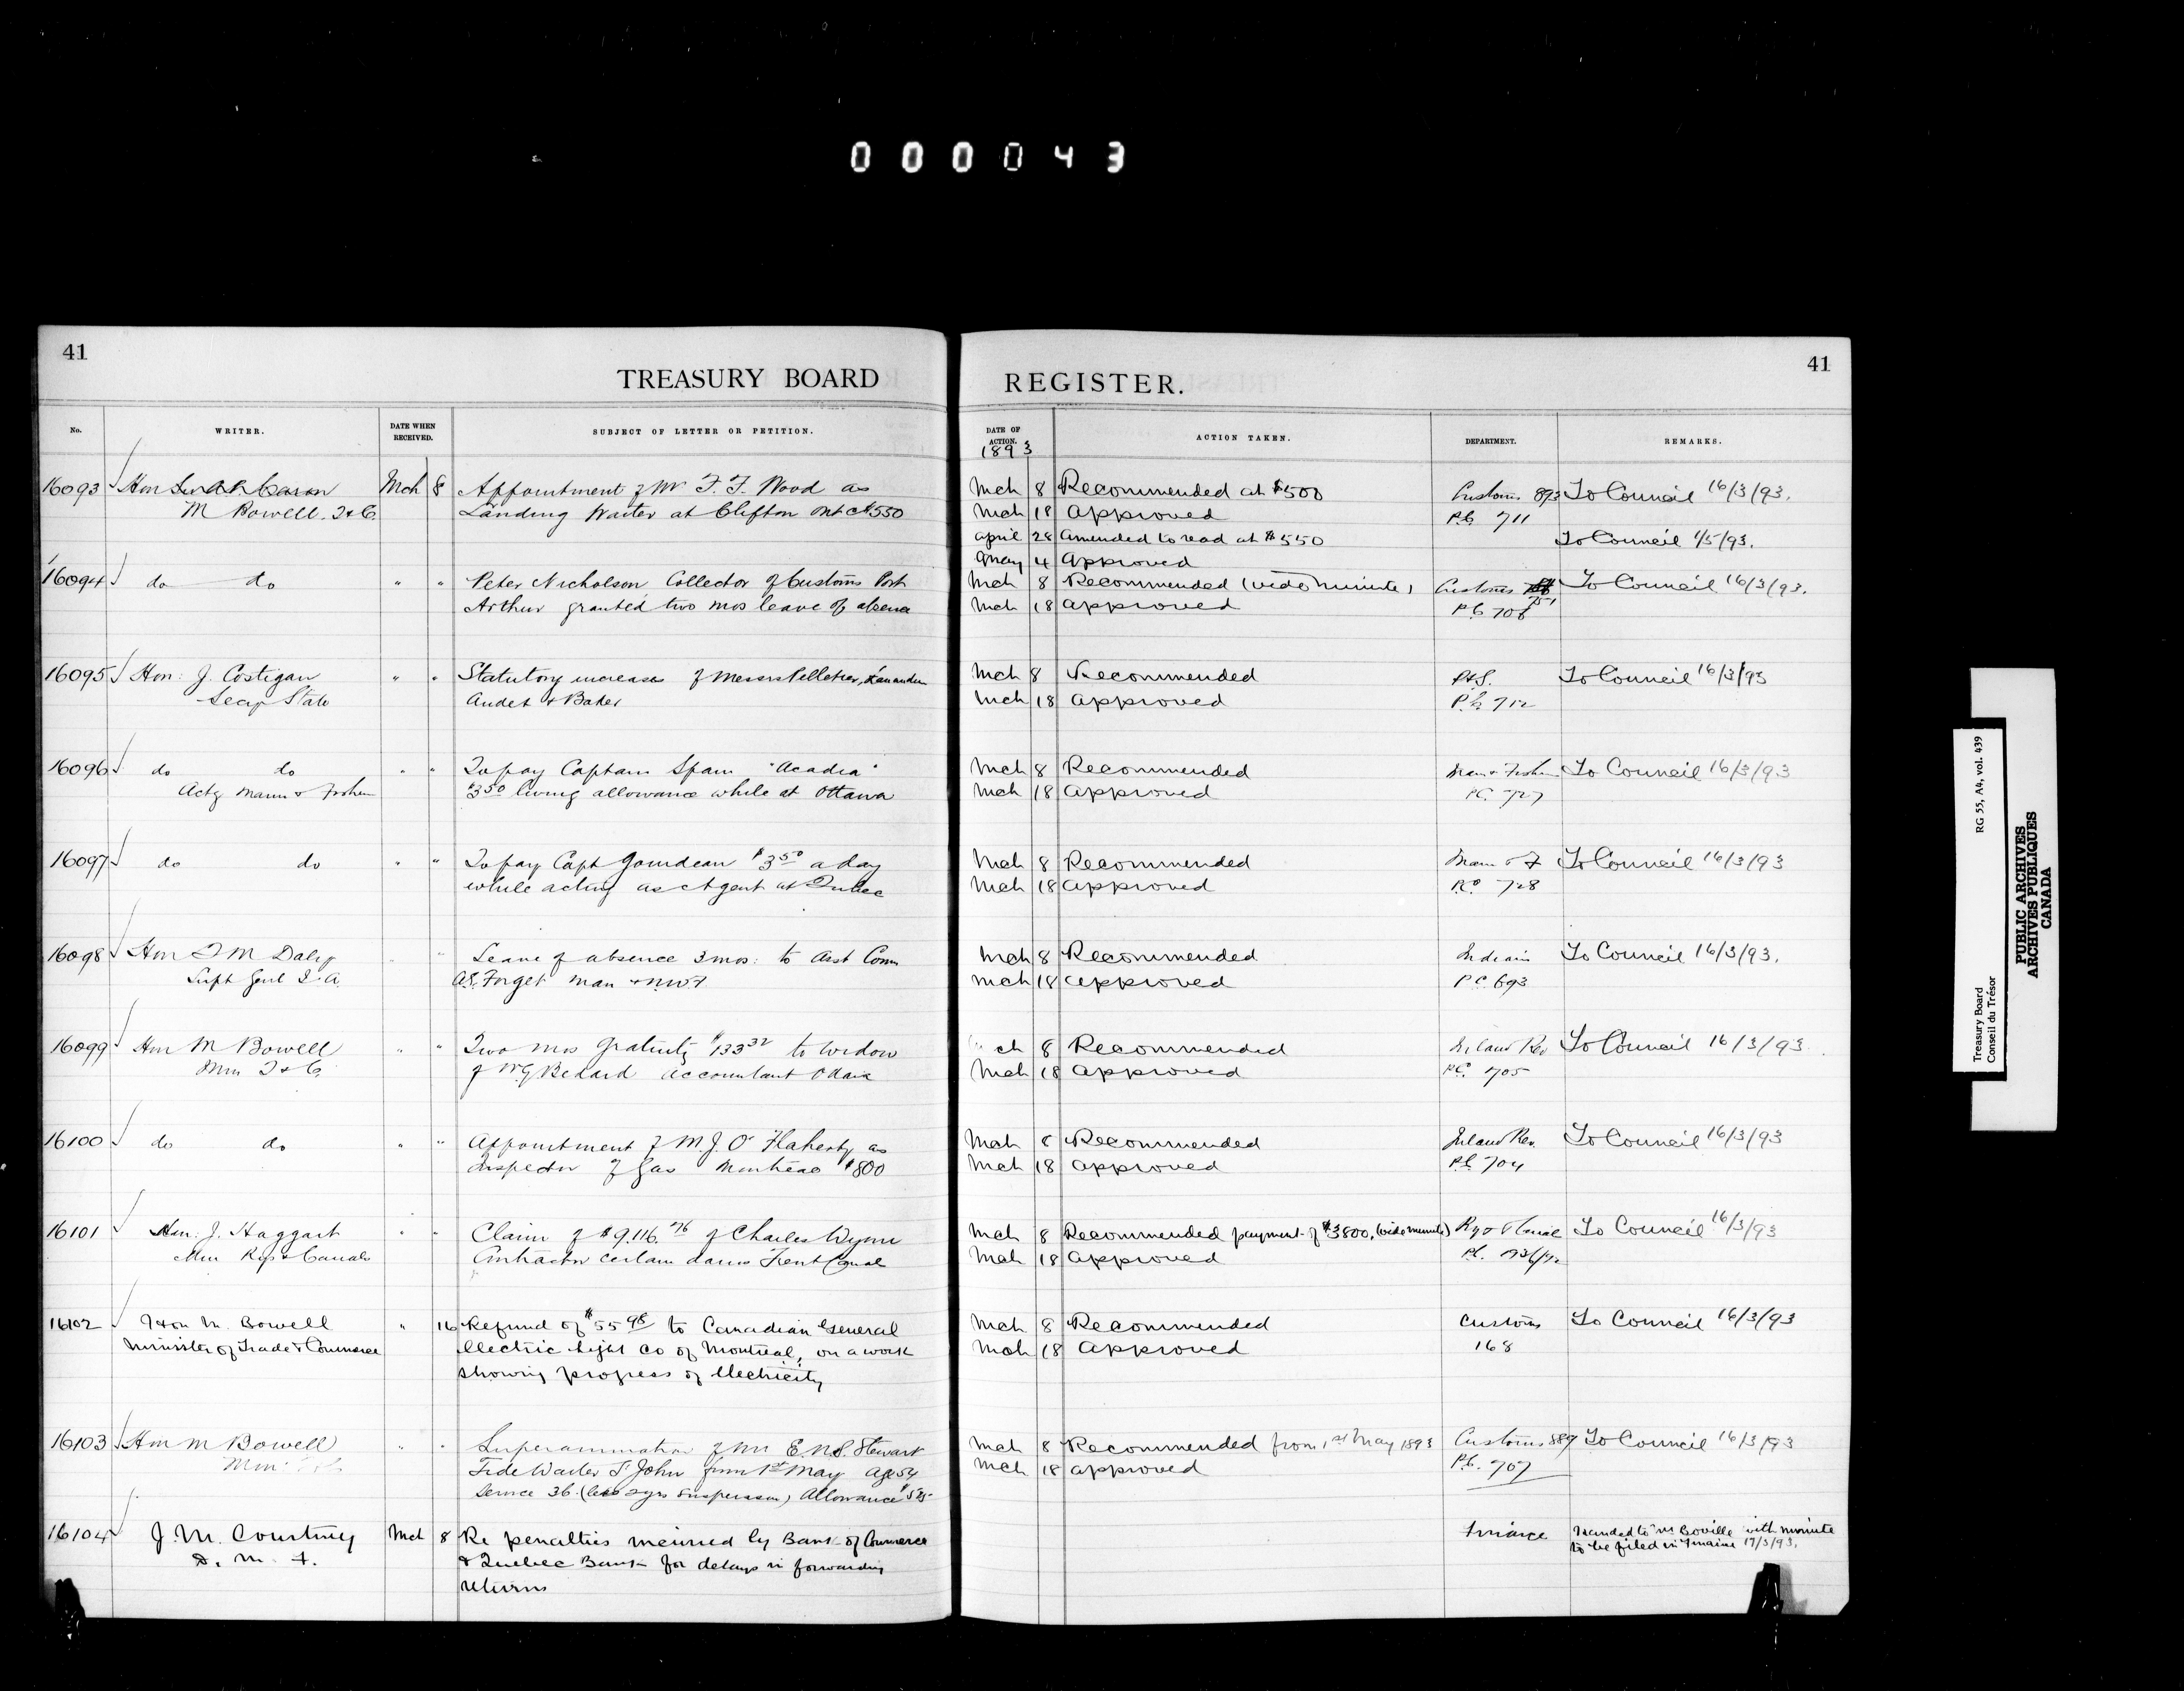 000043
41
TREASURY BOARD
No.
WRITER.
DATE WHEN RECEIVED.
SUBJECT OF LETTER OR PETITION.
16093 Hon Sir A P. Caron Mch 8 Appointment of Mr F. F. Wood as
M Bowell. T & C. Landing Waiter at Clifton Ont $550
16094 do do " " Peter Nicholson Collector of Customs Port
Arthur granted two mos leave of absence
16095 Hon: J. Costigan " " Statutory increases of Messrs Pelletier,
Secy State Audet & Baker
16096 do do " " To pay Captain Spain "Acadia"
Actg Marine & Fisheries $3.50 living allowance while at Ottawa
16097 do do " " To pay Capt Gourdeau $3.50 a day
while acting as Agent at Quebec
16098 Hon T M Daly " " Leave of absence 3 mos: to Asst Comm
Supt Genl I. A. A.E. Forget Man & N.W.T
16099 Hon M Bowell " " Two mos Gratuity $133.32 to Widow
Min T & C. of Bedard Accountant
16100 do do " " Appointment of M. J. O'Flaherty as
Inspector of Gas Montreal $800
16101 Hon: J. Haggart " " Claim of $9,116.76 of Charles Wynn
Min Rys & Canals Contractor certain dams Trent Canal
16102 Hon M. Bowell " 16 Refund of $55.98 to Canadian General
Minister of Trade & Commerce Electric Light Co of Montreal, on a work
showing progress of Electricity
16103 Hon M Bowell " " Superannuation of Mr E.N.S. Stewart
Min: T & C Tide Waiter St John from 1st May Age 54
Service 36 (less 2 yrs suspension) Allowance
16104 J. M. Courtney Mch 8 Re penalties incurred by Bank of Commerce
D. M. F. & Quebec Bank for delays in forwarding
returns
41
REGISTER.
DATE OF ACTION.
1893
ACTION TAKEN.
DEPARTMENT.
REMARKS.
Mch 8 Recommended at $500 Customs 893 To Council 16/3/93.
Mch 18 Approved P.C. 711
April 28 Amended to read at $550 To Council 1/5/93.
May 4 Approved
Mch 8 Recommended (vide minute) Customs To Council 16/3/93.
Mch 18 Approved P.C. 708
Mch 8 Recommended To Council 16/3/93
Mch 18 Approved P.C. 712
Mch 8 Recommended Marine & Fisheries To Council 16/3/93
Mch 18 Approved P.C. 727
Mch 8 Recommended Marine & F To Council 16/3/93
Mch 18 Approved P.C. 728
Mch 8 Recommended Indians To Council 16/3/93.
Mch 18 Approved P.C. 693
ch 8 Recommended Inland Rev To Council 16/3/93.
Mch 18 Approved P.C. 705
Mch 8 Recommended Inland Rev. To Council 16/3/93
Mch 18 Approved P.C. 704
Mch 8 Recommended payment of $3800, (vide minute) Rys & Canal To Council 16/3/93
Mch 18 Approved P.C.
Mch 8 Recommended Customs To Council 16/3/93
Mch 18 Approved 168
Mch 8 Recommended from 1st May 1893 Customs 889 To Council 16/3/93
Mch 18 Approved P.C. 707
Finance Handed to Mr Boville with minute
to be filed in Finance 17/3/93.
Treasury Board RG 55, A4, vol. 439
Conseil du Trésor
PUBLIC ARCHIVES
ARCHIVES PUBLIQUES
CANADA